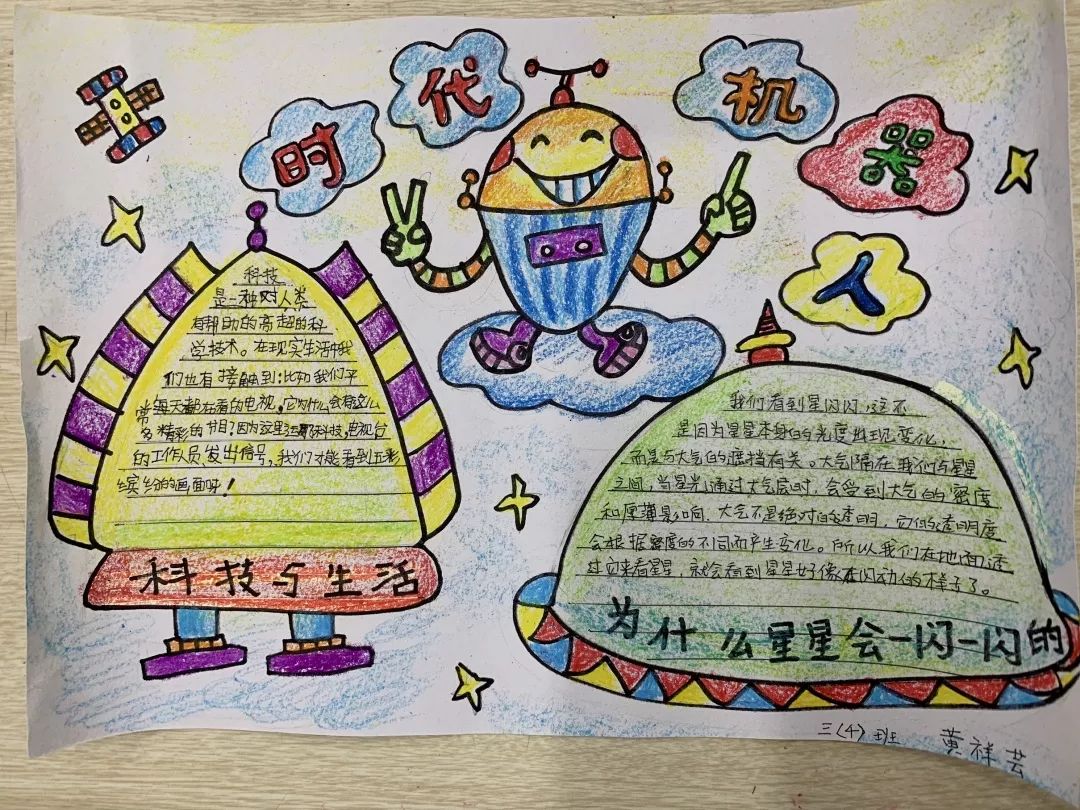 时代机器人
科技
是一种对人类
有帮助的高超的科
学技术。在现实生活中我
们也有接触到:比如我们平
常每天都在看的电视,它为什么会有这么
多精彩的节目?因为这里运用了科技,电视台
的工作人员发出信号,我们才能看到五彩
缤纷的画面呀!
科技与生活
我们看到星闪闪,这不
是因为星星本身的光度出现变化,
而是与大气的遮挡有关。大气隔在我们与星星
之间,当星光通过大气层时,会受到大气的密度
和厚薄影响.大气不是绝对的透明,它的透明度
会根据密度的不同而产生变化。所以我们在地面透
过它来看星星,就会看到星星好像在闪动的样子了。
为什么星星会一闪一闪的
三(4)班 黄祥芸